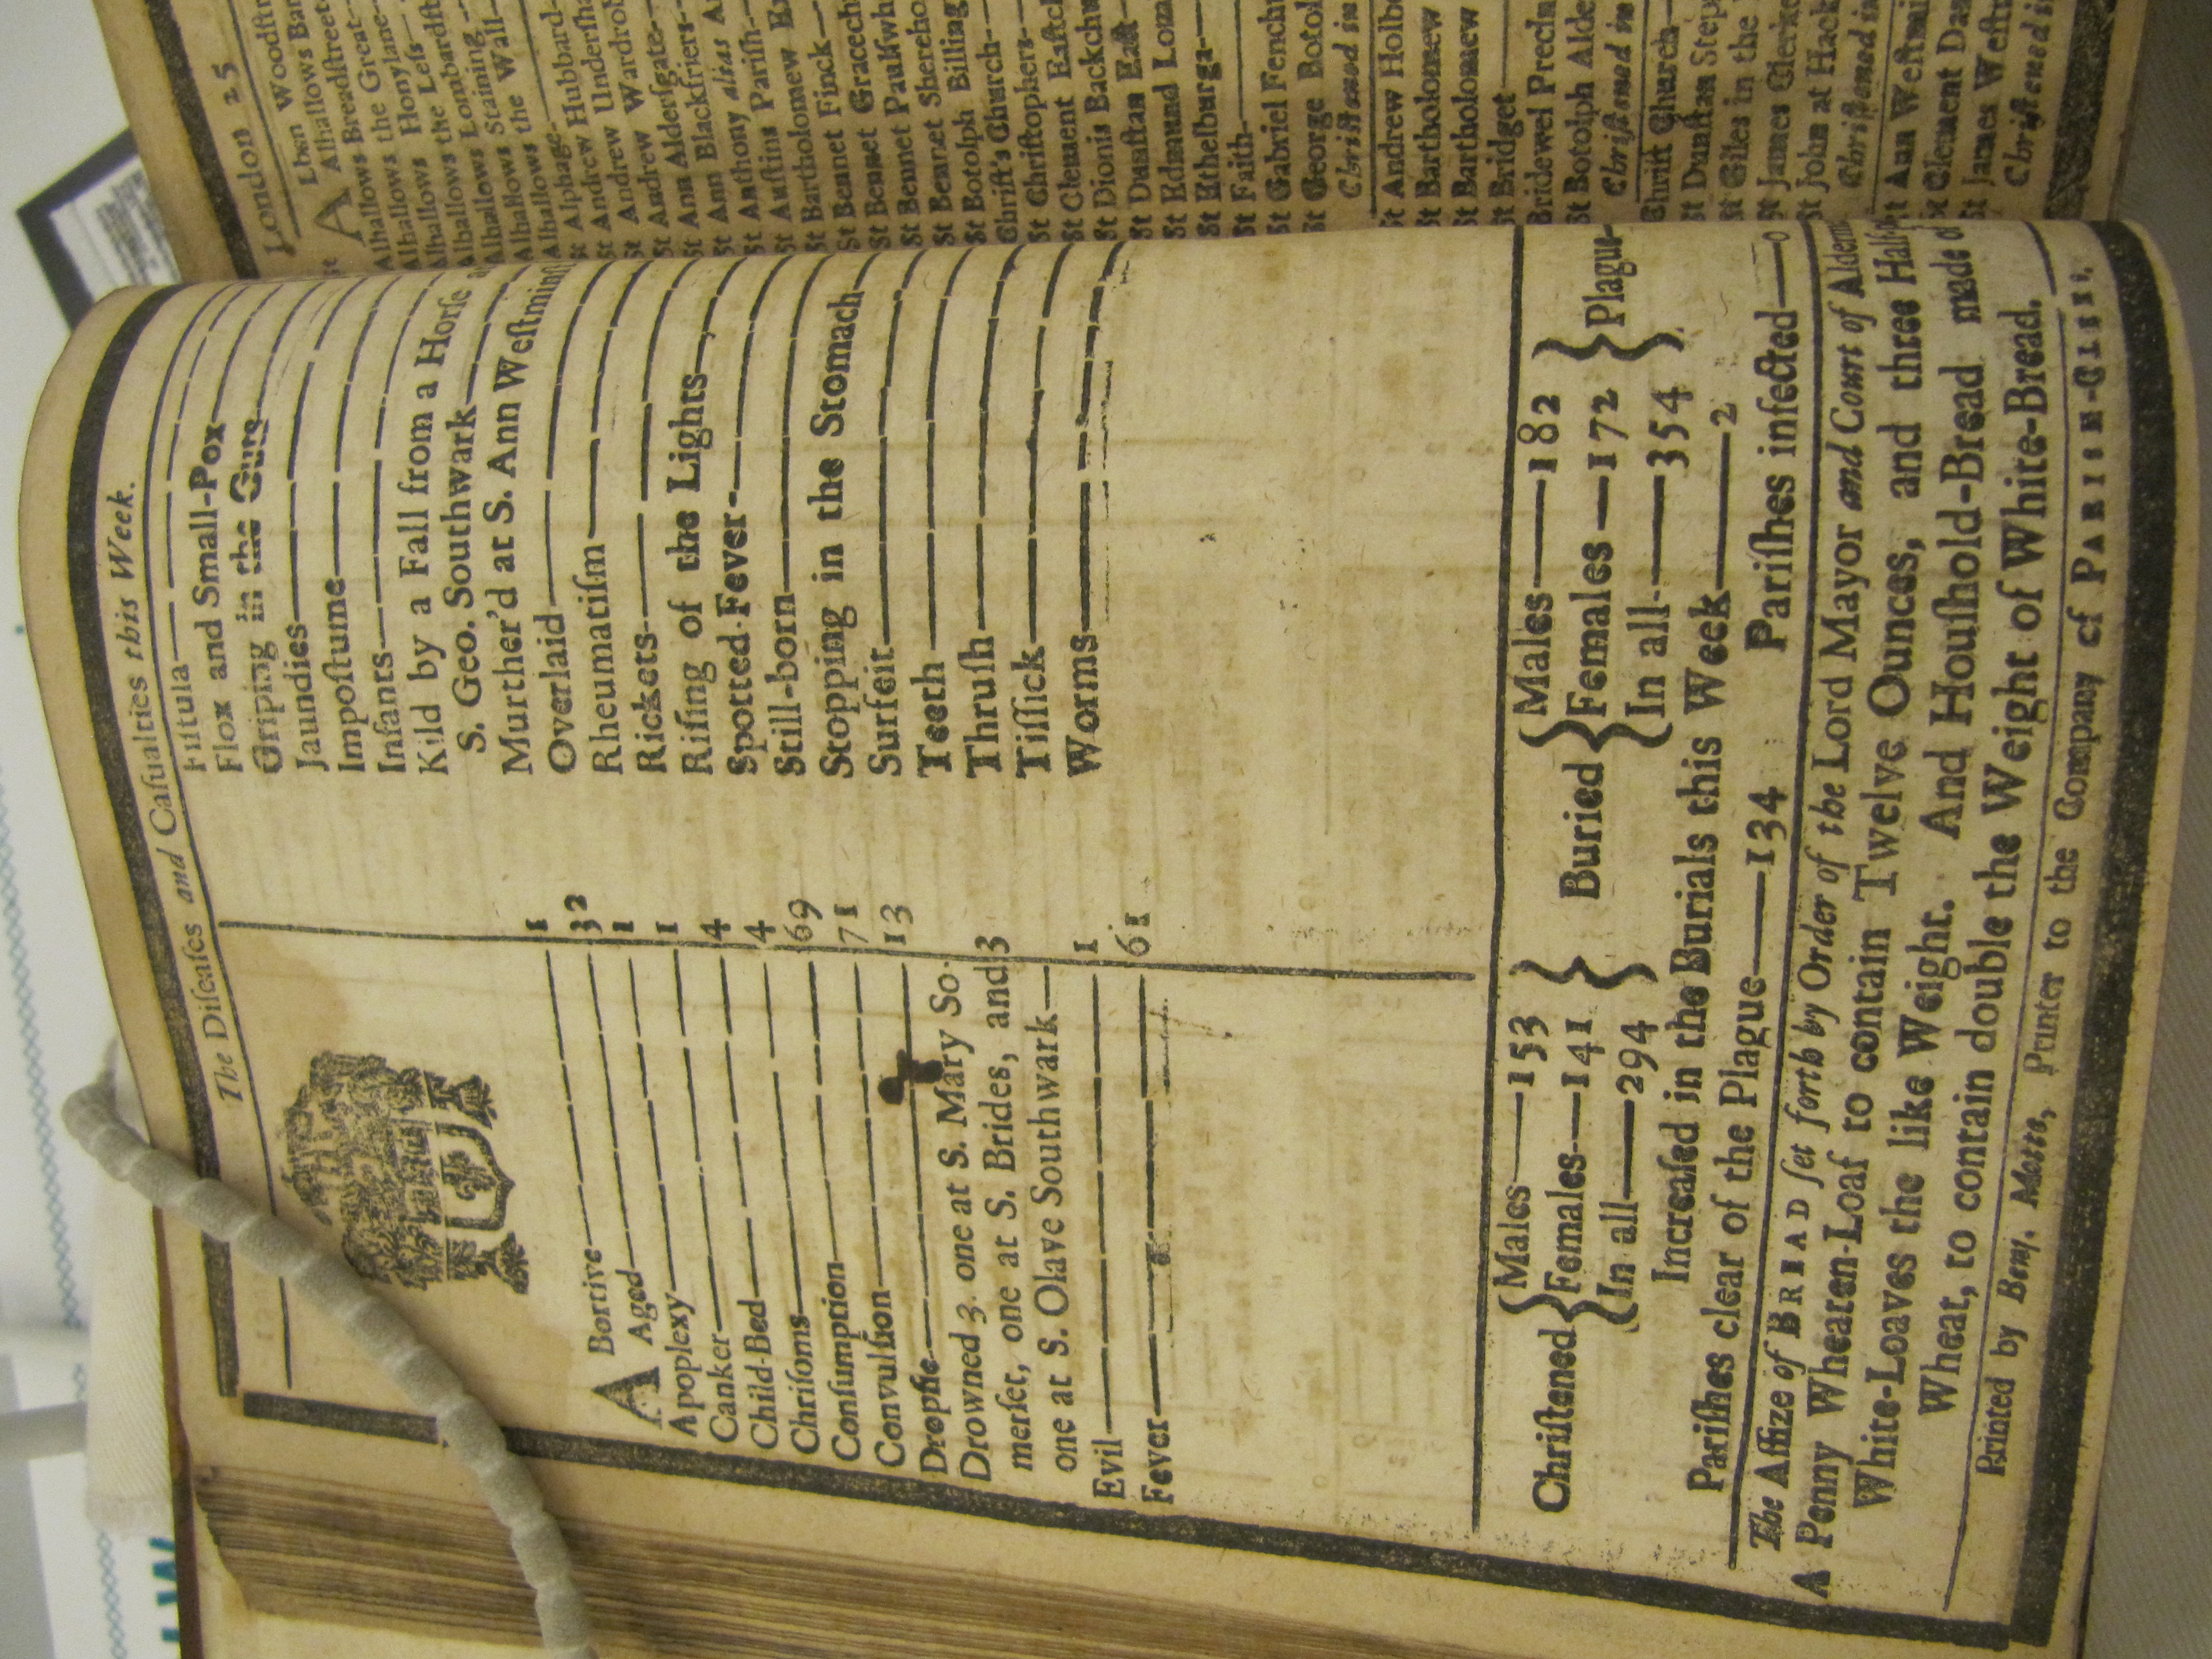 The Diſeaſes and Caſualties this Week.
A Bortive 1
Aged 32
Apoplexy 1
Canker 1
Child-Bed 4
Chriſoms 4
Conſumption 69
Convulſion 71
Dropſie 13
Drowned 3. one at S. Mary So-
merſet, one at S. Brides, and 3
one at S. Olave Southwark
Evil 1
Fever 61
Fiſtula
Flox and Small-Pox
Griping in the Guts
Jaundies
Impoſtume
Infants
Kild by a Fall from a Horſe
S. Geo. Southwark
Murther'd at S. Ann Weſtmin
Overlaid
Rheumatiſm
Rickets
Riſing of the Lights
Spotted-Fever
Still-born
Stopping in the Stomach
Surfeit
Teeth
Thruſh
Tiſſick
Worms
Chriſtened { Males—153 Females—141 In all—294 }
Buried { Males—182 Females—172 In all—354 } Plague
Increaſed in the Burials this Week—2
Pariſhes clear of the Plague—134 Pariſhes infected—0
The Aſſize of BREAD ſet forth by Order of the Lord Mayor and Court of Alderm
A Penny Wheaten-Loaf to contain Twelve Ounces, and three Half
White-Loaves the like Weight. And Houſhold-Bread made
Wheat, to contain double the Weight of White-Bread.
Printed by Benj. Motte, Printer to the Company of PARISH-CLERKS.
London 25
St
A Lban Woodſtr
Alhallows Bar
Alhallows Breadſtreet
Alhallows the Great
Alhallows Honylane
Alhallows the Leſs
Alhallows the Lombardſt
Alhallows Staining
Alhallows the Wall
Alhallows
St Alphage
St Andrew Hubbard
St Andrew Underſha
St Andrew Wardrob
St Ann Alderſgate
St Ann Blackfriers
St Anthony alias
St Auſtins Pariſh
St Bartholomew
St Bennet Finck
St Bennet Gracech
St Bennet Paulſwh
St Bennet Shereho
St Botolph Billing
Chriſt's Church
St Chriſtophers
St Clement Eaſtch
St Dionis Backchu
St Dunſtan Eaſt
St Edmund Lom
St Ethelburga
St Faith
St Gabriel Fenchu
St George Botol
Chriſtned in
St Andrew Holb
St Bartholomew
St Bartholomew
St Bridget
Bridewel Precin
St Botolph Alde
Chriſtned in
Chriſt Church
St Dunſtan Step
St Giles in the
St James Clerke
St John at Hack
Chriſtened in
St Ann Weſtmi
St Clement Da
St James Weſt
Chriſtened in